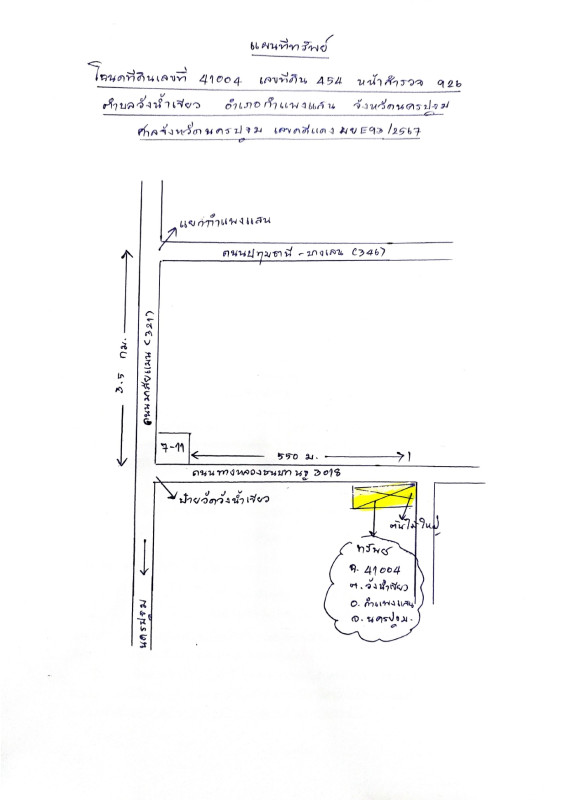 แผนที่ทรัพย์
โฉนดที่ดินเลขที่ 41004 เลขที่ดิน 454 หน้าสำรวจ 926
ตำบลวังน้ำเขียว อำเภอกำแพงแสน จังหวัดนครปฐม
ศาลจังหวัดนครปฐม เลขคดีแดง ผบE93/2567
แยกกำแพงแสน
ถนนปทุมธานี - บางเลน (346)
3.5 กม.
ถนนมาลัยแมน (321)
7-11
550 ม.
ถนนทางหลวงชนบท นฐ 3018
ป้ายวัดวังน้ำเขียว
ต้นไม้ใหญ่
ทรัพย์
ฉ. 41004
ต. วังน้ำเขียว
อ. กำแพงแสน
จ. นครปฐม.
นครปฐม